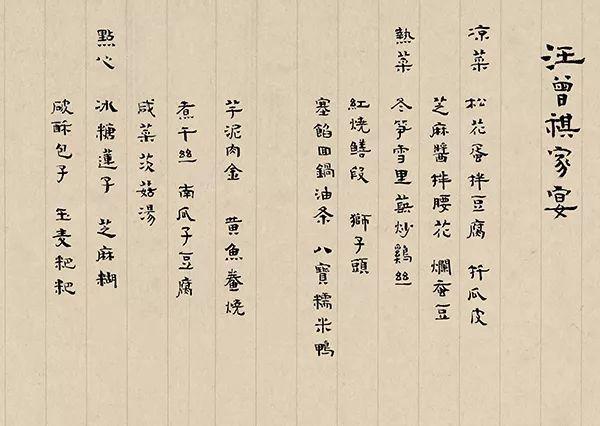 汪曾祺家宴
凉菜 松花蛋拌豆腐 扦瓜皮
芝麻醬拌腰花 爛蚕豆
熱菜 冬笋雪里蕻炒鷄絲
紅燒鳝段 獅子頭
塞餡回鍋油条 八寶糯米鴨
芋泥肉金 黄魚鲞燒
煮干絲 南瓜子豆腐
咸菜茨菇湯
點心 冰糖蓮子 芝麻糊
破酥包子 玉麦粑粑